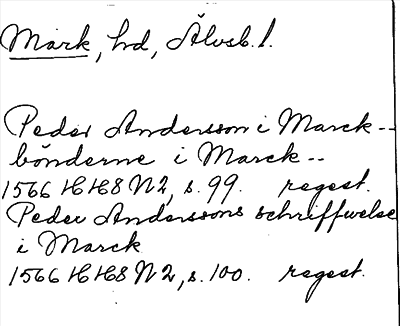 Mark, hd, Älvsb. l.
Peder Andersson i Marck --
bönderne i Marck --
1566 HH8 N2, s. 99. regest.
Peder Anderssons schriffwelse
i Marck
1566 HH8 N2, s. 100. regest.